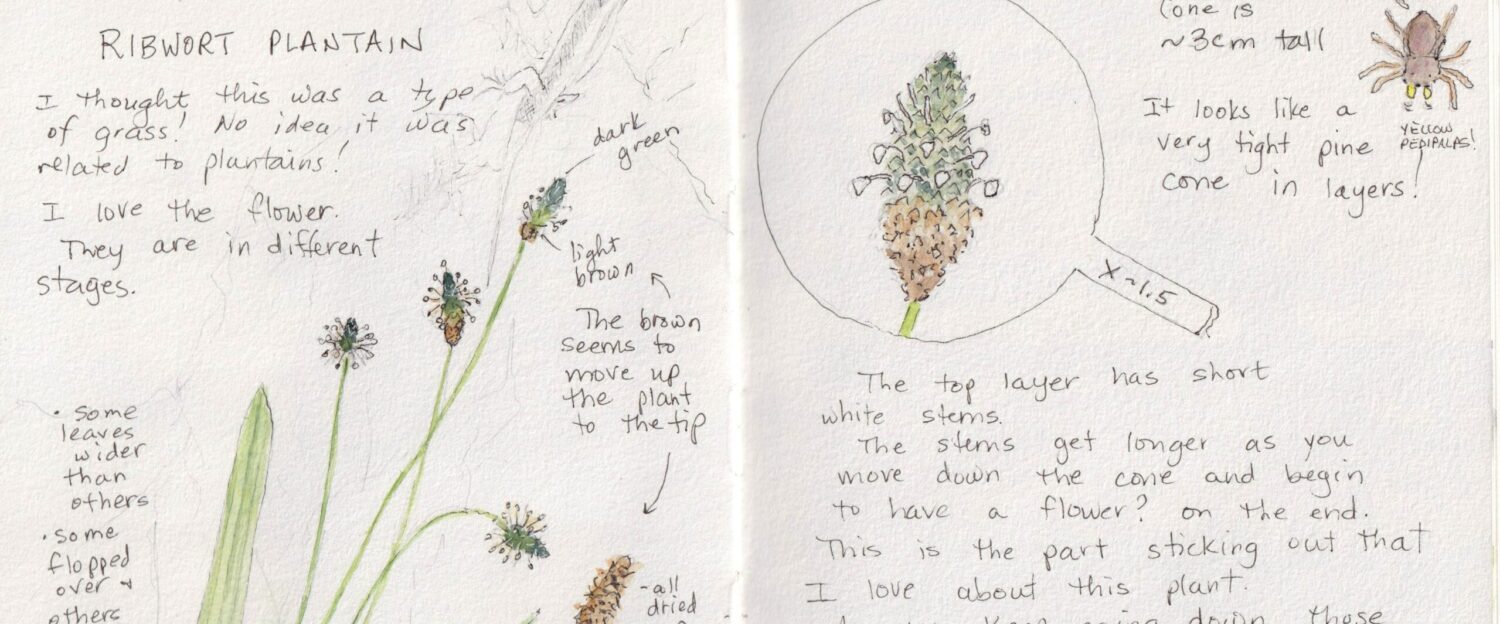 RIBWORT PLANTAIN
I thought this was a type
of grass! No idea it was
related to plantains!
I love the flower.
They are in different
stages.
dark
green
light
brown
The brown
seems to
move up
the plant
to the tip
• some
leaves
wider
than
others
• some
flopped
over
others
-all
dried
Cone is
~3cm tall
It looks like a
very tight pine
cone in layers!
YELLOW
PEDIPALPS!
X ~1.5
The top layer has short
white stems.
The stems get longer as you
move down the cone and begin
to have a flower? on the end.
This is the part sticking out that
I love about this plant.
down those